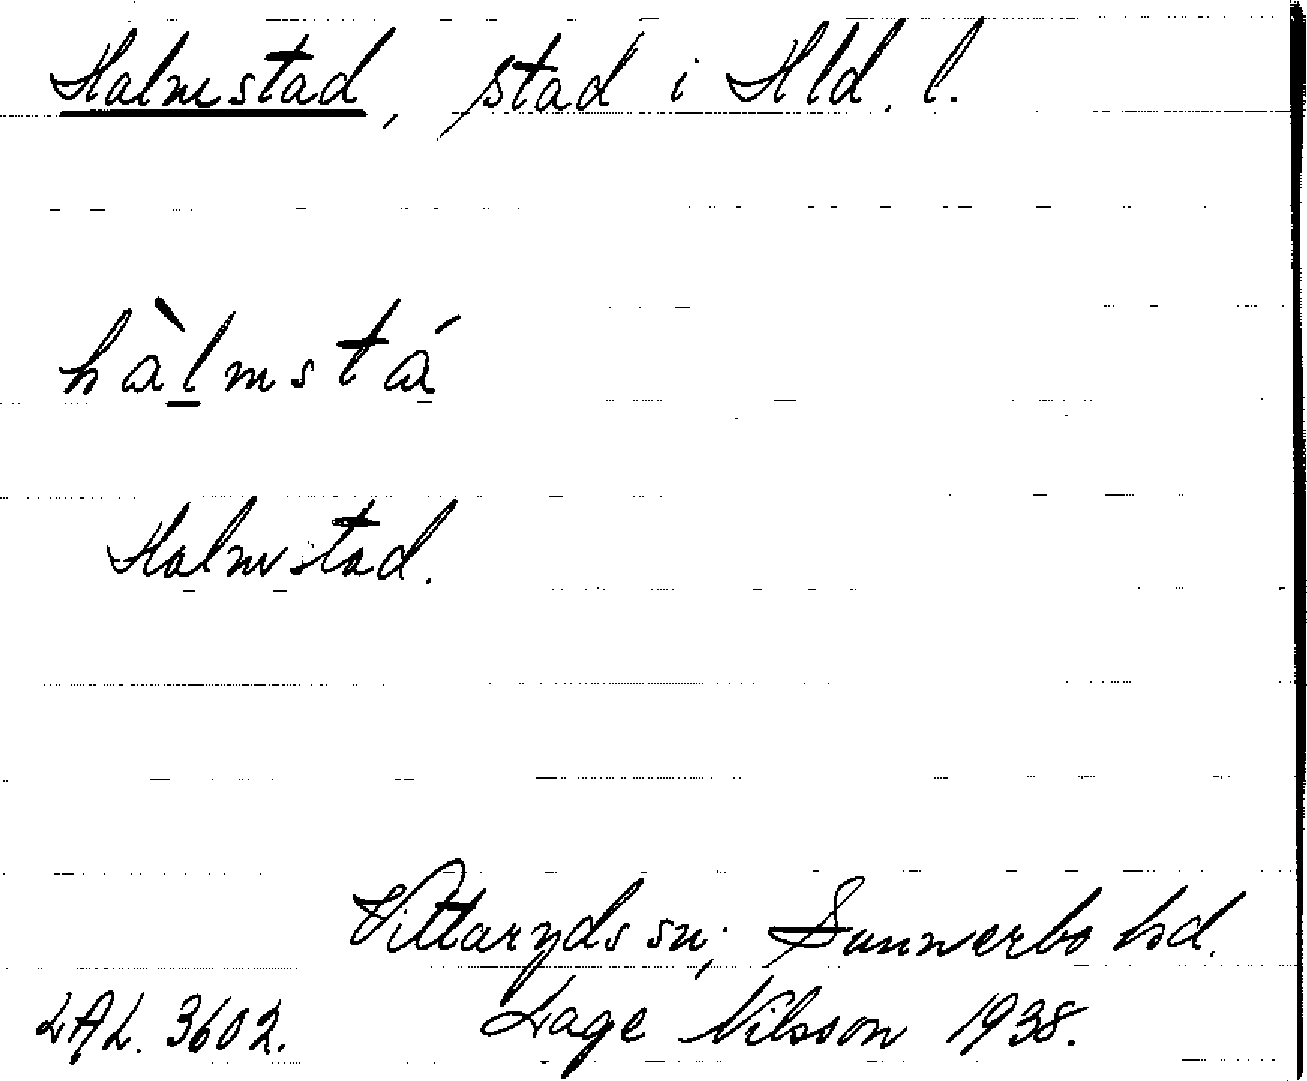 Halmstad, stad i Hld. l.
hàl̲mstá
Halmstad.
Vittaryds sn; Sunnerbo hd.
LAL. 3602. Lage Nilsson 1938.